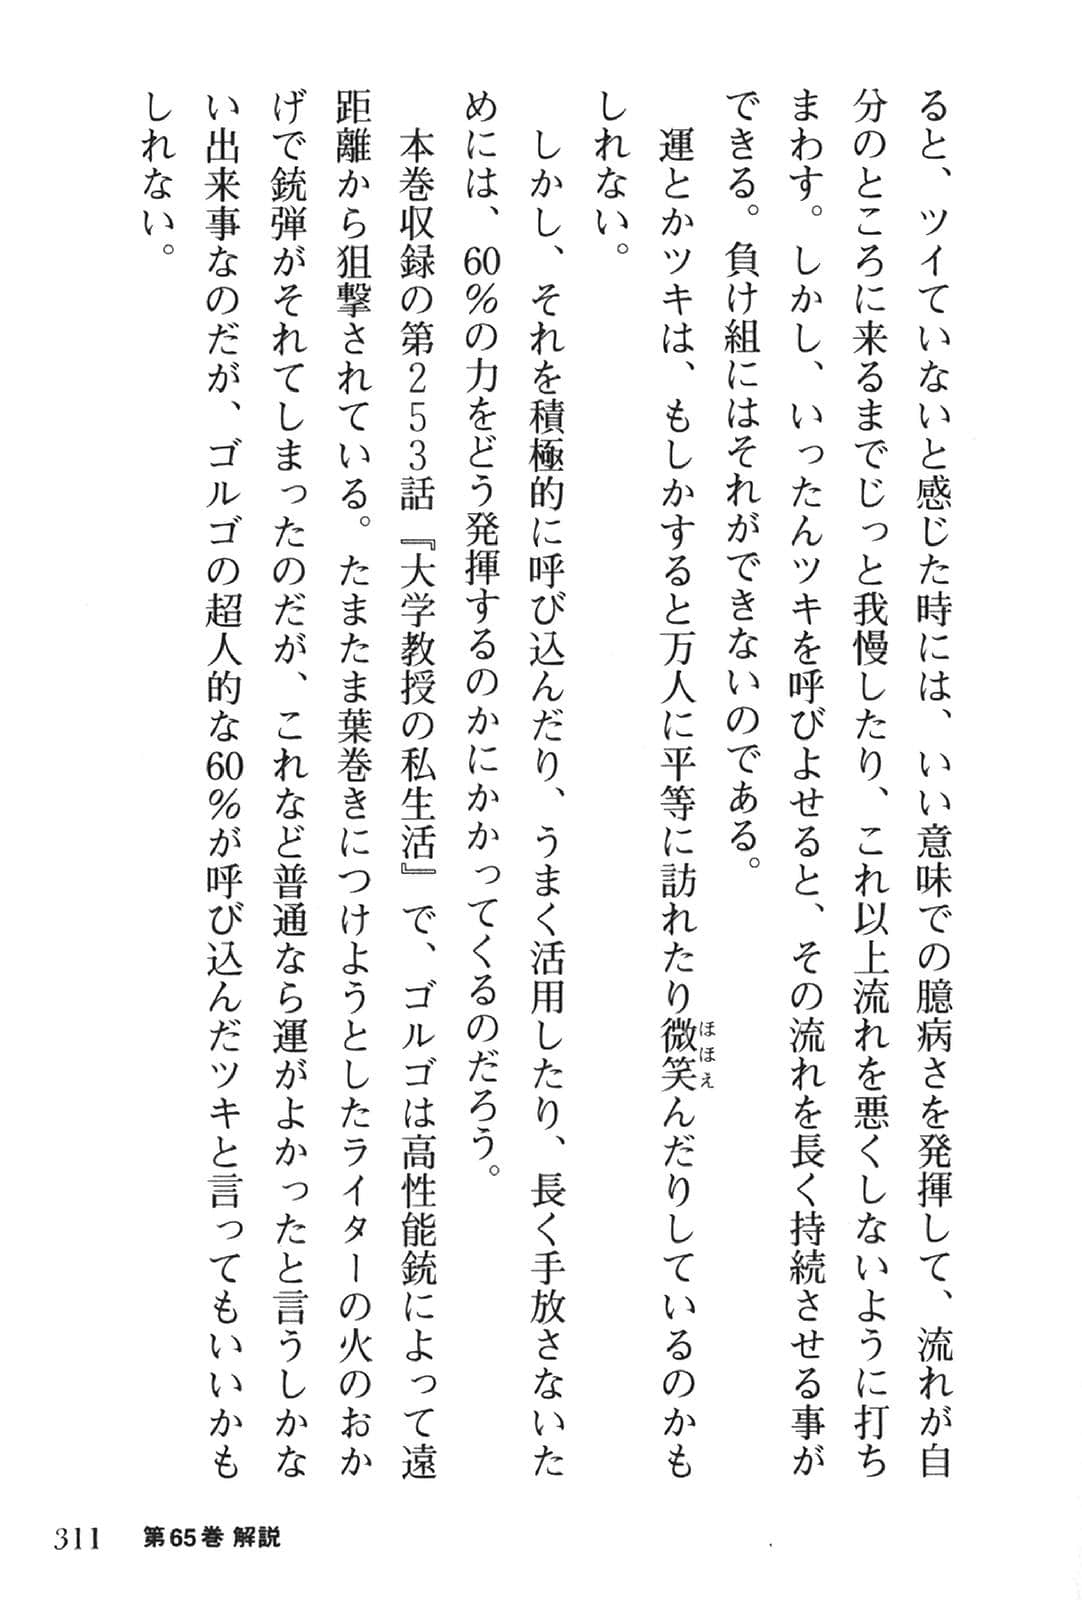 ると、ツイていないと感じた時には、いい意味での臆病さを発揮して、流れが自
分のところに来るまでじっと我慢したり、これ以上流れを悪くしないように打ち
まわす。しかし、いったんツキを呼びよせると、その流れを長く持続させる事が
できる。負け組にはそれができないのである。
運とかツキは、もしかすると万人に平等に訪れたり微笑んだりしているのかも
ほほえ
しれない。
しかし、それを積極的に呼び込んだり、うまく活用したり、長く手放さないた
めには、60%の力をどう発揮するのかにかかってくるのだろう。
本巻収録の第253話『大学教授の私生活』で、ゴルゴは高性能銃によって遠
距離から狙撃されている。たまたま葉巻きにつけようとしたライターの火のおか
げで銃弾がそれてしまったのだが、これなど普通なら運がよかったと言うしかな
い出来事なのだが、ゴルゴの超人的な60%が呼び込んだツキと言ってもいいかも
しれない。
311 第65巻 解説